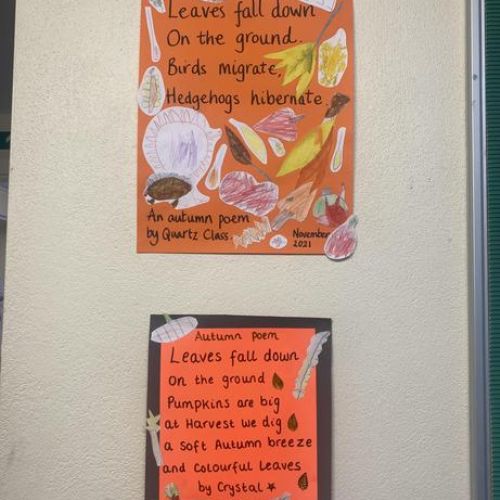 Leaves fall down
On the ground.
Birds migrate,
Hedgehogs hibernate.
An autumn poem
by Quartz Class.
November
2021
Autumn poem
Leaves fall down
On the ground
Pumpkins are big
at Harvest we dig
a soft Autumn breeze
and colourful Leaves
by Crystal